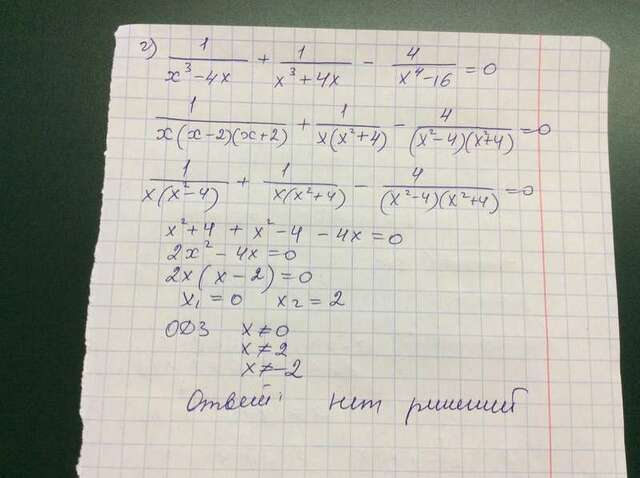 г) 1/(x³-4x) + 1/(x³+4x) - 4/(x⁴-16) = 0
1/(x(x-2)(x+2)) + 1/(x(x²+4)) - 4/((x²-4)(x²+4)) = 0
1/(x(x²-4)) + 1/(x(x²+4)) - 4/((x²-4)(x²+4)) = 0
x²+4 + x²-4 - 4x = 0
2x² - 4x = 0
2x(x-2) = 0
x₁ = 0 x₂ = 2
ОДЗ x ≠ 0
x ≠ 2
x ≠ -2
Ответ: нет решений